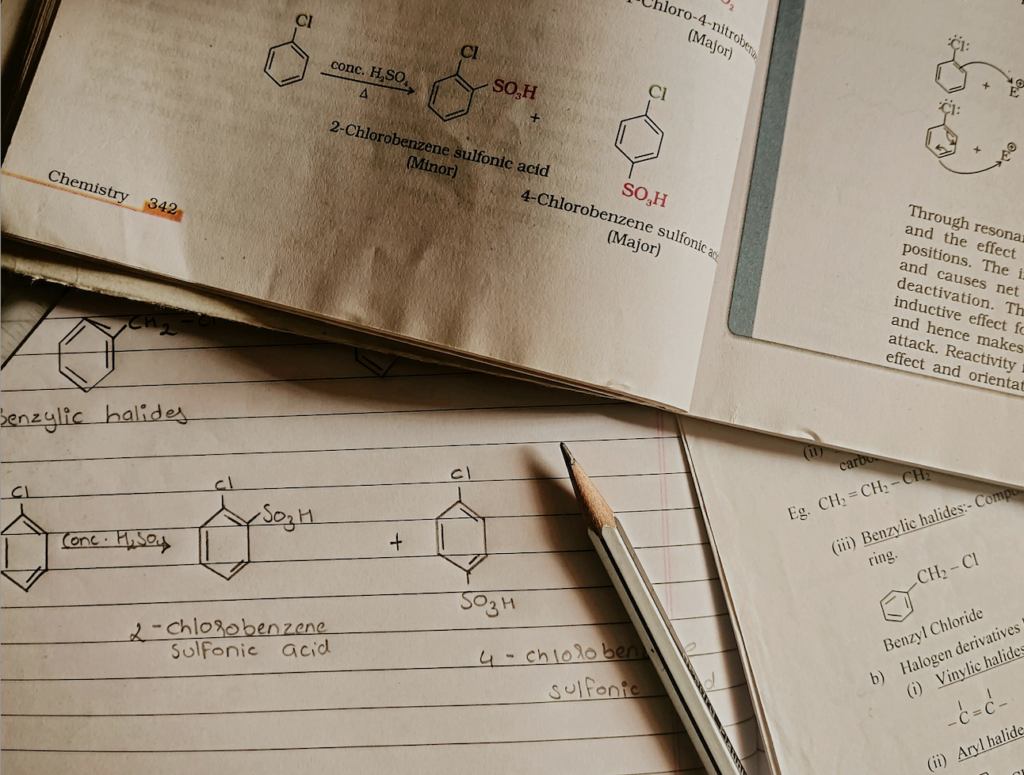 (Major)
Cl
conc. H₂SO₄
Δ
Cl
SO₃H
+
2-Chlorobenzene sulfonic acid
(Minor)
Cl
SO₃H
4-Chlorobenzene sulfonic
(Major)
Chemistry 342
:Cl:
+ E⊕
:Cl:
+ E⊕
Through
and the effect
positions. The
and causes net
deactivation.
inductive effect
and hence makes
attack. Reactivity
effect and
CH₂ - Cl
Benzylic halides
Cl
Conc. H₂SO₄
Cl
SO₃H
+
Cl
SO₃H
2-chlorobenzene
sulfonic acid
4-
sulfonic
(ii)
Eg. CH₂ = CH₂ – CH₂
(iii) Benzylic halides:-
ring.
CH₂ – Cl
Benzyl Chloride
b) Halogen derivatives
(i) Vinylic halides
-C = C-
(ii) Aryl